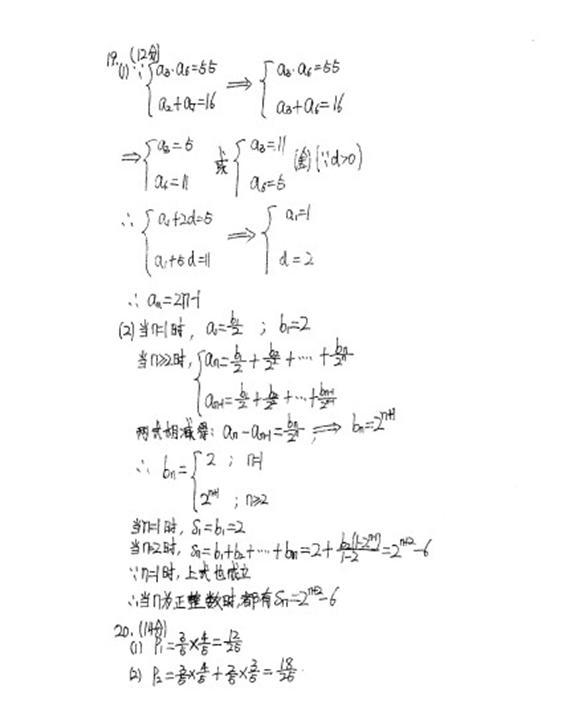 19. (12分)
(1) ∵ { a₃·a₆=55 ⟹ { a₃·a₆=55
a₂+a₇=16 a₃+a₆=16
⟹ { a₃=5 或 { a₃=11 (舍) (∵d>0)
a₆=11 a₆=5
∴ { a₁+2d=5 ⟹ { a₁=1
a₁+5d=11 d=2
∴ aₙ=2n-1
(2) 当n=1时, a₁=b₁/2 ; b₁=2
当n≥2时, { aₙ=b₁/2+b₂/2²+…+bₙ/2ⁿ
aₙ₋₁=b₁/2+b₂/2²+…+bₙ₋₁/2ⁿ⁻¹
两式相减得: aₙ-aₙ₋₁=bₙ/2ⁿ, ⟹ bₙ=2ⁿ⁺¹
∴ bₙ= { 2 ; n=1
2ⁿ⁺¹ ; n≥2
当n=1时, S₁=b₁=2
当n≥2时, Sₙ=b₁+b₂+…+bₙ=2+b₂(1-2ⁿ⁻¹)/1-2=2ⁿ⁺²-6
∵n=1时, 上式也成立
∴当n为正整数时,都有Sₙ=2ⁿ⁺²-6
20. (14分)
(1) P₁=3/5×4/5=12/25
(2) P₂=3/5×4/5+2/5×3/5=18/25